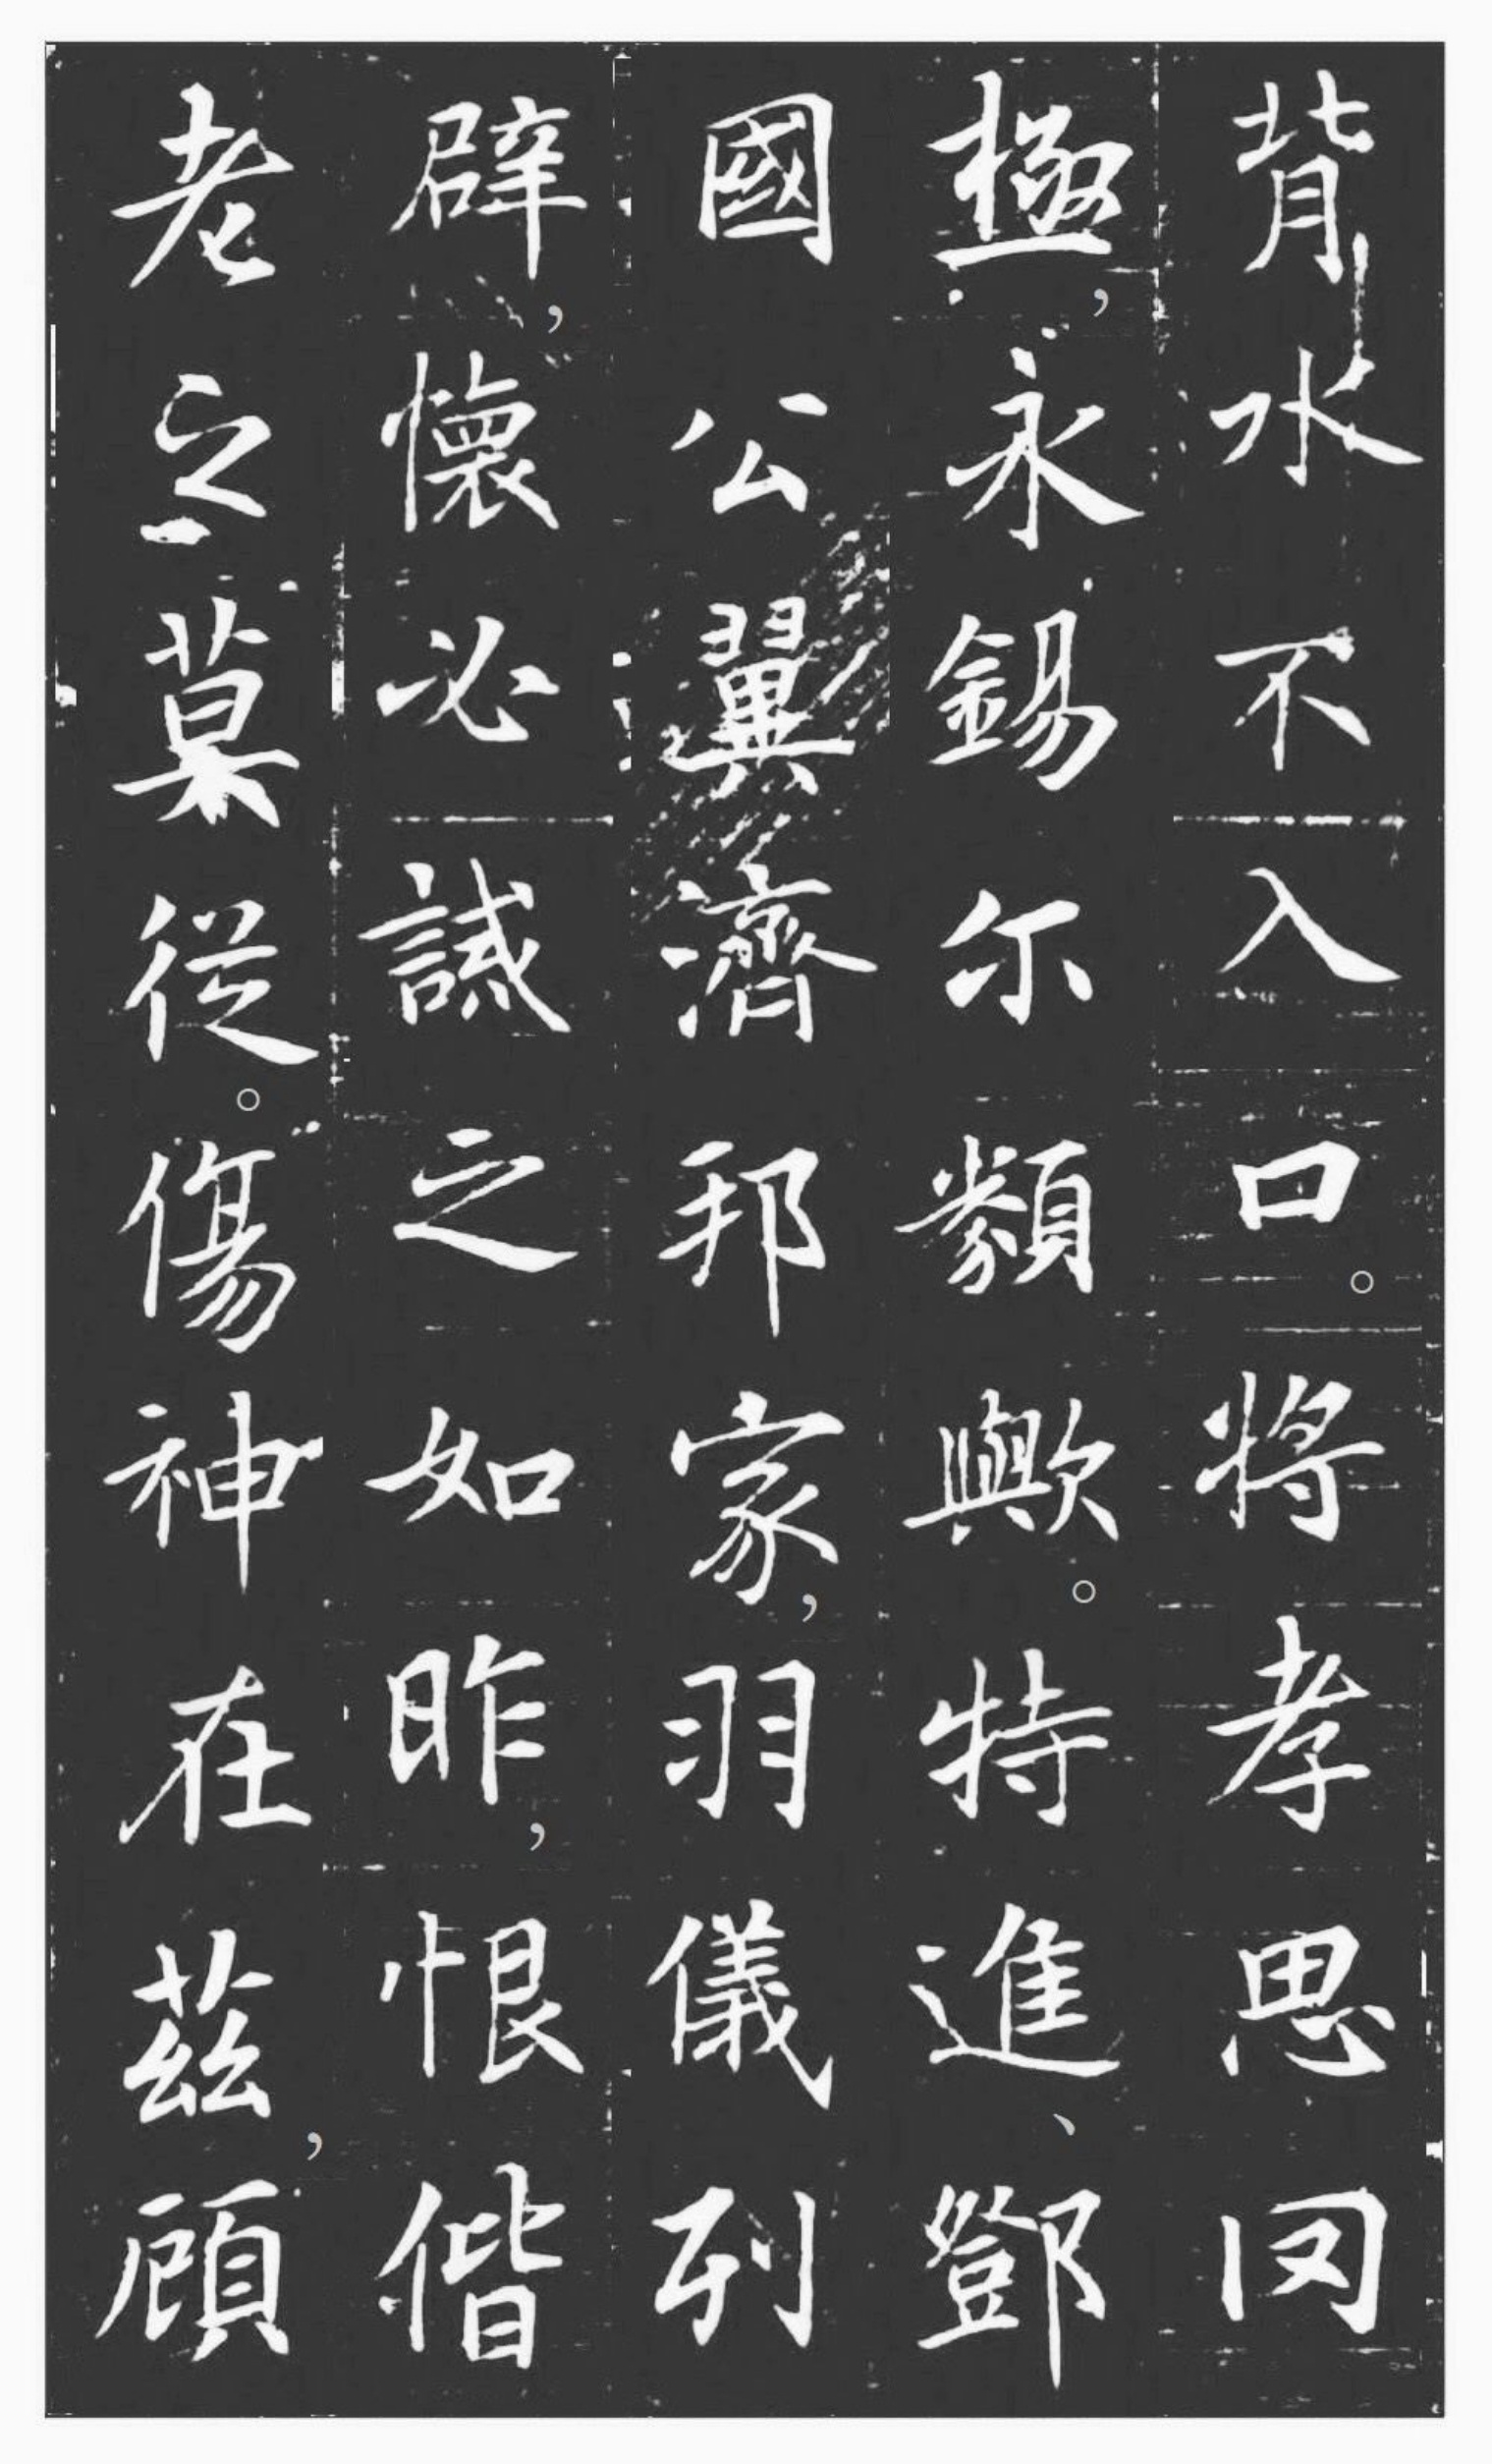 背水不入口。将孝思罔
極，永錫尔纇歟。特進、鄧
國公翼濟邦家，羽儀列
辟，懷必誠之如昨，恨偕
老之莫從。傷神在茲，顧